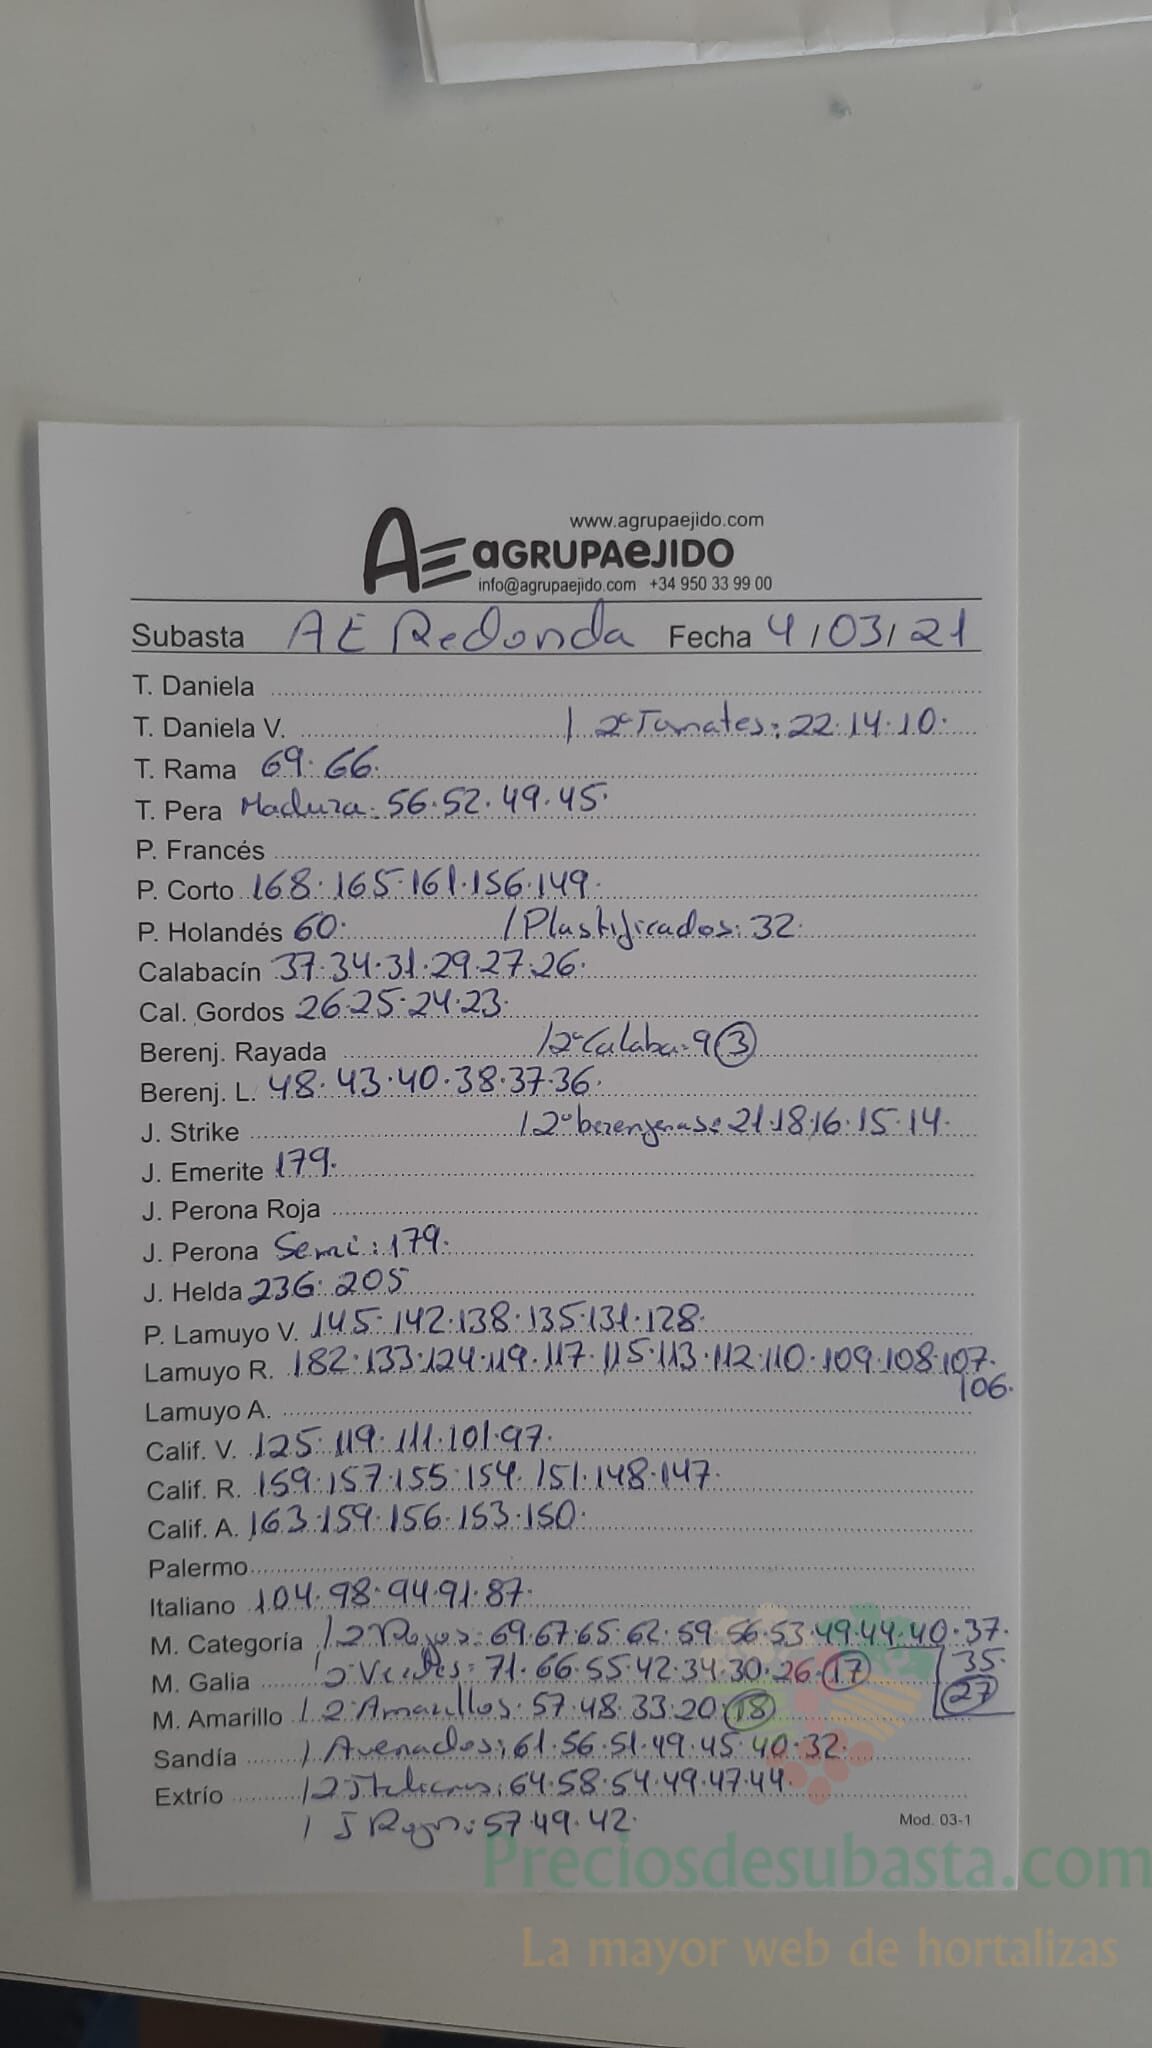 www.agrupaejido.com
AE aGRUPAeJIDO
info@agrupaejido.com +34 950 33 99 00
Subasta AE Redonda Fecha 4/03/21
T. Daniela
T. Daniela V. / 2ª Tomates: 22. 14. 10.
T. Rama 69. 66.
T. Pera Madura: 56. 52. 49. 45.
P. Francés
P. Corto 168. 165. 161. 156. 149.
P. Holandés 60. / Plastificados: 32.
Calabacín 37. 34. 31. 29. 27. 26.
Cal. Gordos 26. 25. 24. 23.
Berenj. Rayada / 2ª Calaba: 9 3
Berenj. L. 48. 43. 40. 38. 37. 36.
J. Strike / 2ª berenjenas: 21. 18. 16. 15. 14.
J. Emerite 179.
J. Perona Roja
J. Perona Semi: 179.
J. Helda 236. 205
P. Lamuyo V. 145. 142. 138. 135. 131. 128.
Lamuyo R. 182. 133. 124. 119. 117. 115. 113. 112. 110. 109. 108. 107.
106.
Lamuyo A.
Calif. V. 125. 119. 111. 101. 97.
Calif. R. 159. 157. 155. 154. 151. 148. 147.
Calif. A. 163. 159. 156. 153. 150.
Palermo
Italiano 104. 98. 94. 91. 87.
M. Categoría / 2 Rojos: 69. 67. 65. 62. 59. 56. 53. 49. 44. 40. 37.
35.
M. Galia / 2 Verdes: 71. 66. 55. 42. 34. 30. 26. 17
27
M. Amarillo / 2 Amarillos: 57. 48. 33. 20. 18
Sandía / Asenados: 61. 56. 51. 49. 45. 40. 32.
Extrío / 2 Italianos: 64. 58. 54. 49. 47. 44.
/ I Rojo: 57. 49. 42.
Mod. 03-1
Preciosdesubasta.com
La mayor web de hortalizas